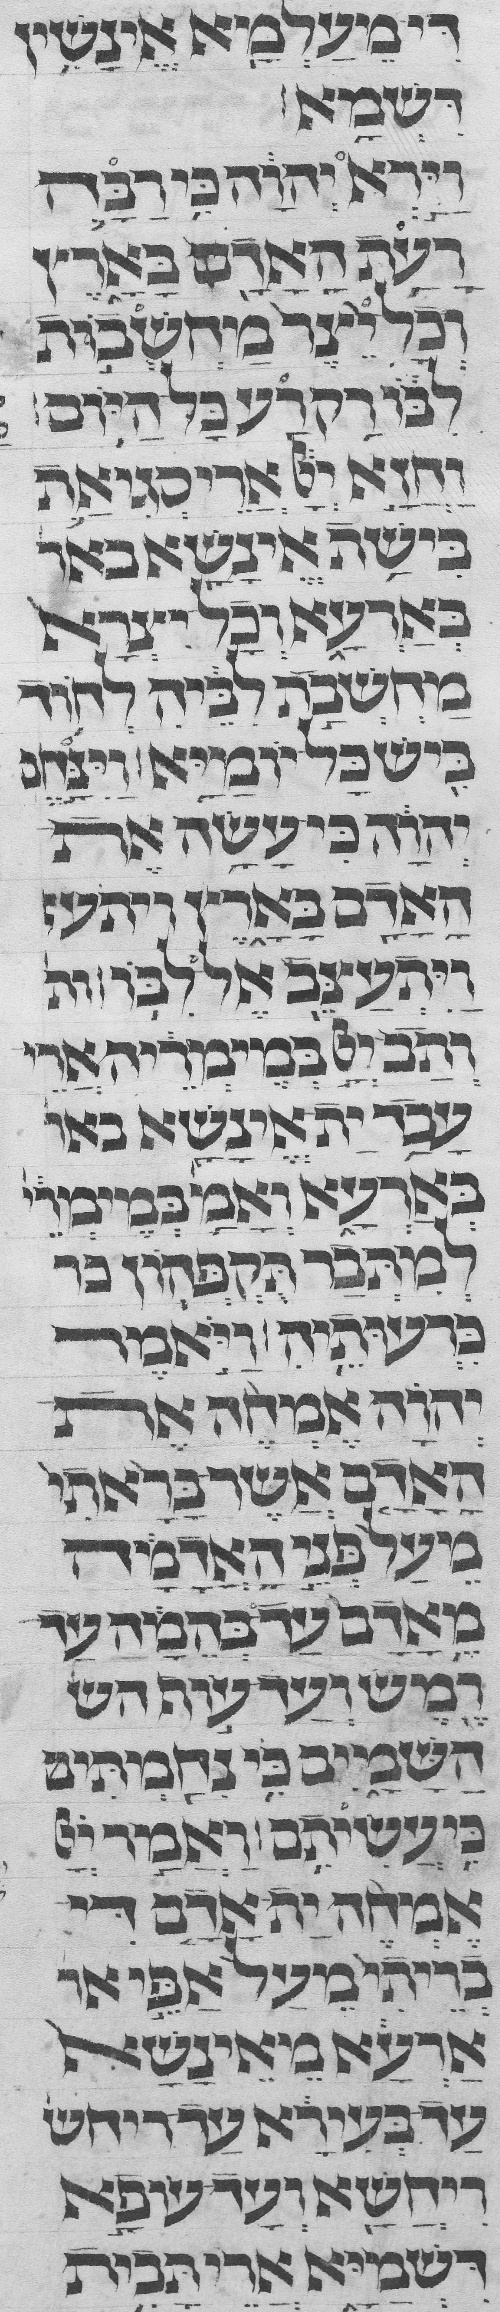 דִּי מֵעָלְמָא אֱינָשִׁין
דִּשְׁמָא׃
וַיַּרְא יְהוָה כִּי רַבָּה
רָעַת הָאָדָם בָּאָרֶץ
וְכָל יֵצֶר מַחְשְׁבוֹת
לִבּוֹ רַק רַע כָּל הַיּוֹם׃
וַחֲזָא יט אֲרֵי סְגִיאַת
בִּישַׁת אֱינָשָׁא באר
בְּאַרְעָא וְכָל יִצְרָא
מַחְשְׁבַת לִבֵּיהּ לְחוֹד
בִּישׁ כָּל יוֹמַיָּא׃ וַיִּנָּחֶם
יְהוָה כִּי עָשָׂה אֶת
הָאָדָם בָּאָרֶץ ויתע
וַיִּתְעַצֵּב אֶל לִבּוֹ׃ ות
וְתָב יט בְּמֵימְרֵיהּ אֲרֵי
עֲבַד יָת אֱינָשָׁא באר
בְּאַרְעָא וַאֲמַ בְּמֵימְרֵי
לְמִתְבַר תֻּקְפְּהוֹן כר
כִּרְעוּתֵיהּ׃ וַיֹּאמֶר
יְהוָה אֶמְחֶה אֶת
הָאָדָם אֲשֶׁר בָּרָאתִי
מֵעַל פְּנֵי הָאֲדָמָה
מֵאָדָם עַד בְּהֵמָה עַד
רֶמֶשׂ וְעַד עוֹף הש
הַשָּׁמָיִם כִּי נִחַמְתִּי
כִּי עֲשִׂיתִם׃ וַאֲמַר יט
אֶמְחֵה יָת אֲדָם דִּי
בְרֵיתִי מֵעַל אַפֵּי אר
אַרְעָא מֵאֱינָשָׁא
עַד בְּעִירָא עַד ריחש
רִיחְשָׁא וְעַד עוֹפָא
דִּשְׁמַיָּא אֲרֵי תַבִית